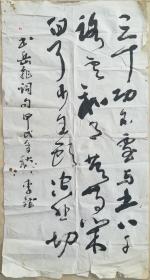 三十功名尘与土八千
里路云和月莫等闲
白了少年头空悲切
书岳飞词句甲申年秋